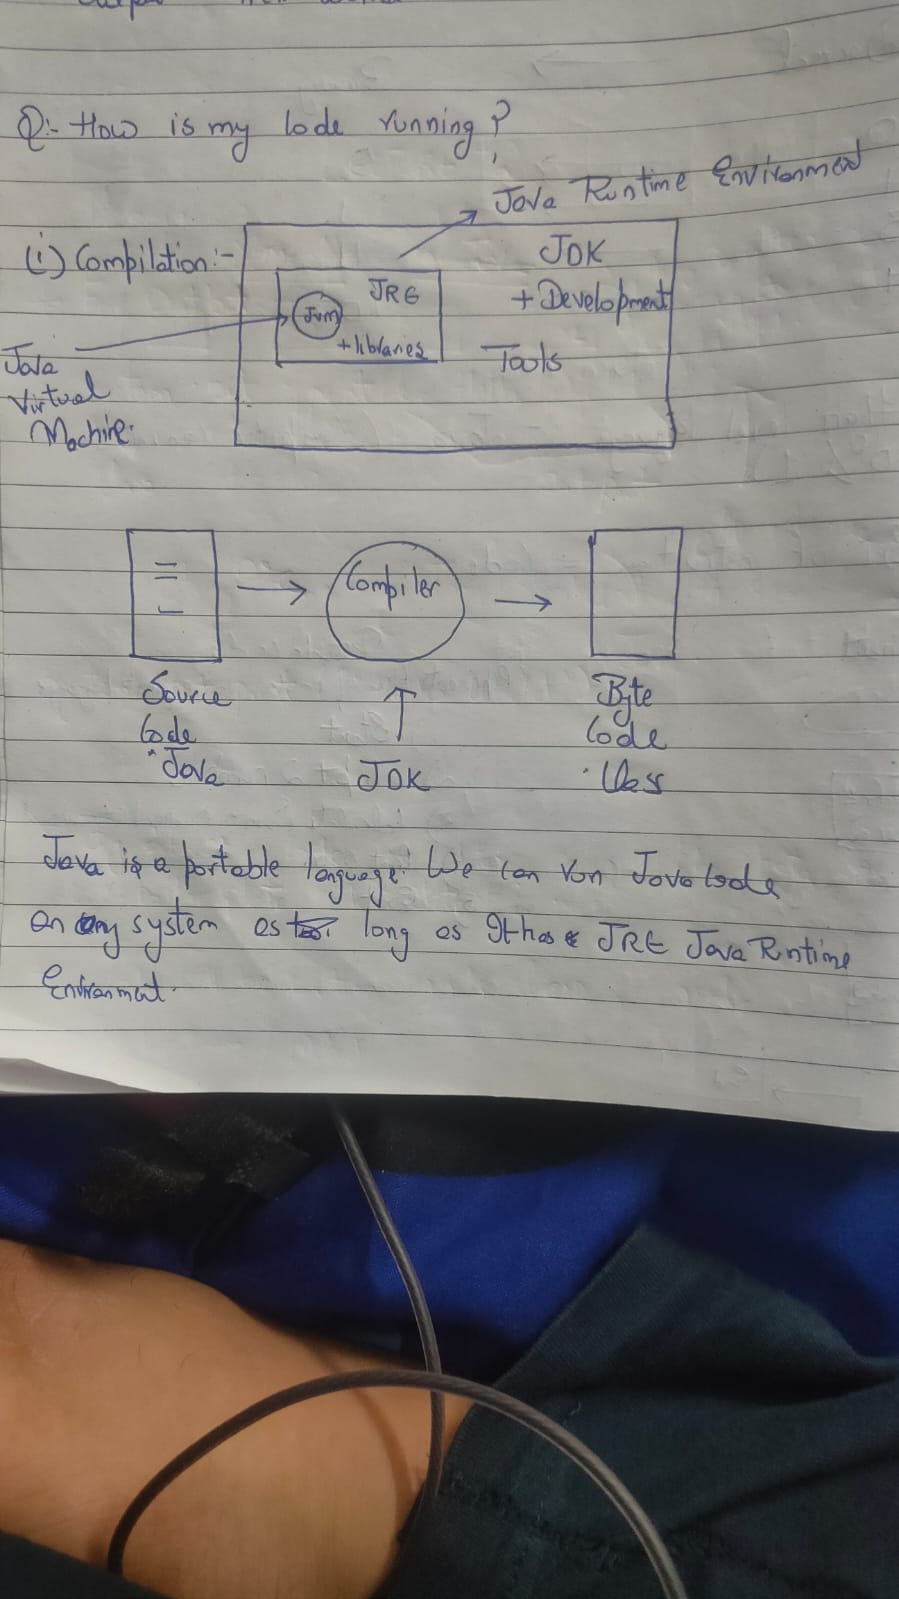 Q:- How is my Code running?
Java Runtime Environment
(i) Compilation:-
JDK
+ Development
Tools
JRE
Jvm
+ libraries
Java
Virtual
Machine.
Compiler
Source
Code
.Java
JDK
Byte
Code
.Class
Java is a portable language. We Can run Java Code
on any system as long as it has JRE Java Runtime
Environment.